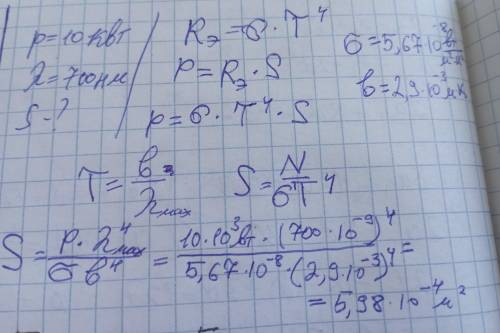 p = 10 кВт
λ = 700 нм
S - ?
Rэ = σ · T⁴
P = Rэ · S
p = σ · T⁴ · S
σ = 5,67 · 10⁻⁸ Вт
в = 2,9 · 10⁻³ мК
T = в / λmax
S = N / σT⁴
S = P · λ⁴max / σв⁴ = 10 · 10³ Вт · (700 · 10⁻⁹)⁴ / 5,67 · 10⁻⁸ · (2,9 · 10⁻³)⁴ =
= 5,98 · 10⁻⁴ м²